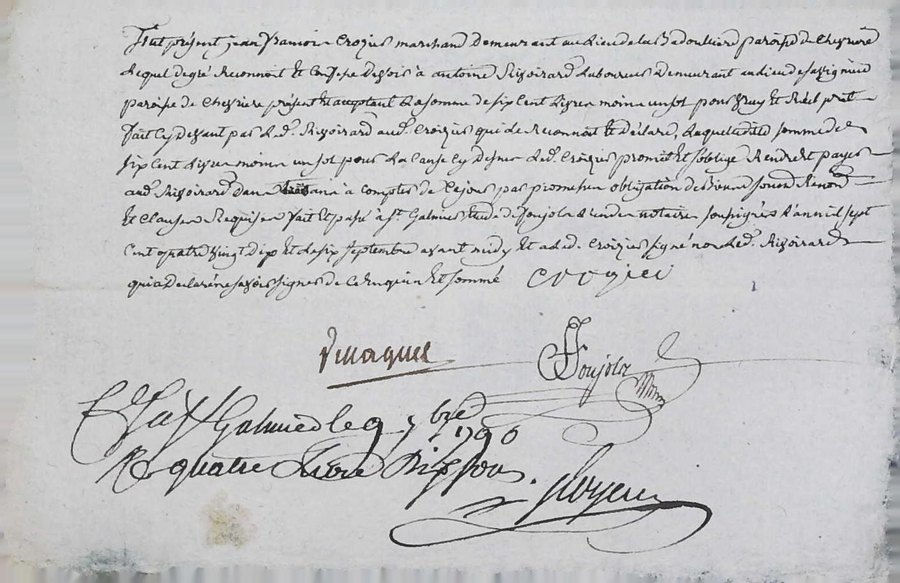 fut présent jean francois Crozier marchand demeurant au lieu de la Badouliere paroisse de Chevriere
lequel de gré reconnoit et confesse devoir à antoine Rivoirard laboureur demeurant au lieu de
paroisse de Chevriere présent et acceptant la somme de six cent livres moins un sol pour vray et réel prêt
fait cy devant par led. Rivoirard aud. Crozier qui le reconnoit et déclare, laquelle ditte somme de
six cent livres moins un sol pour la cause cy dessus led. Crozier promet et s'oblige rendre et payer
aud. Rivoirard dans à compter de ce jour par promesse obligation de biens soum. renon.
et clauses requises fait et passé à St. Galmier étude de Ponjola l'un des notaires soussignés l'an mil sept
cent quatre vingt dix et le six septembre avant midy et a led. Crozier signé non led. Rivoirard
qui a déclaré ne savoir signer de ce enquis et sommé Crozier
Ponjola
A St Galmier le 9 7bre 1790
R quatre livre dix sous.